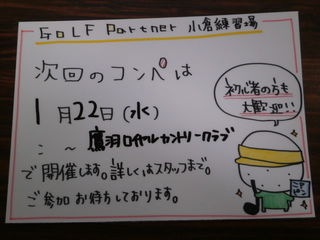 GOLF Partner 小倉練習場
次回のコンペは
1月22日(水)
鷹羽ロイヤルカントリークラブ
で開催します。詳しくはスタッフまで。
ご参加お待ちしております。
初心者の方も
大歓迎!!